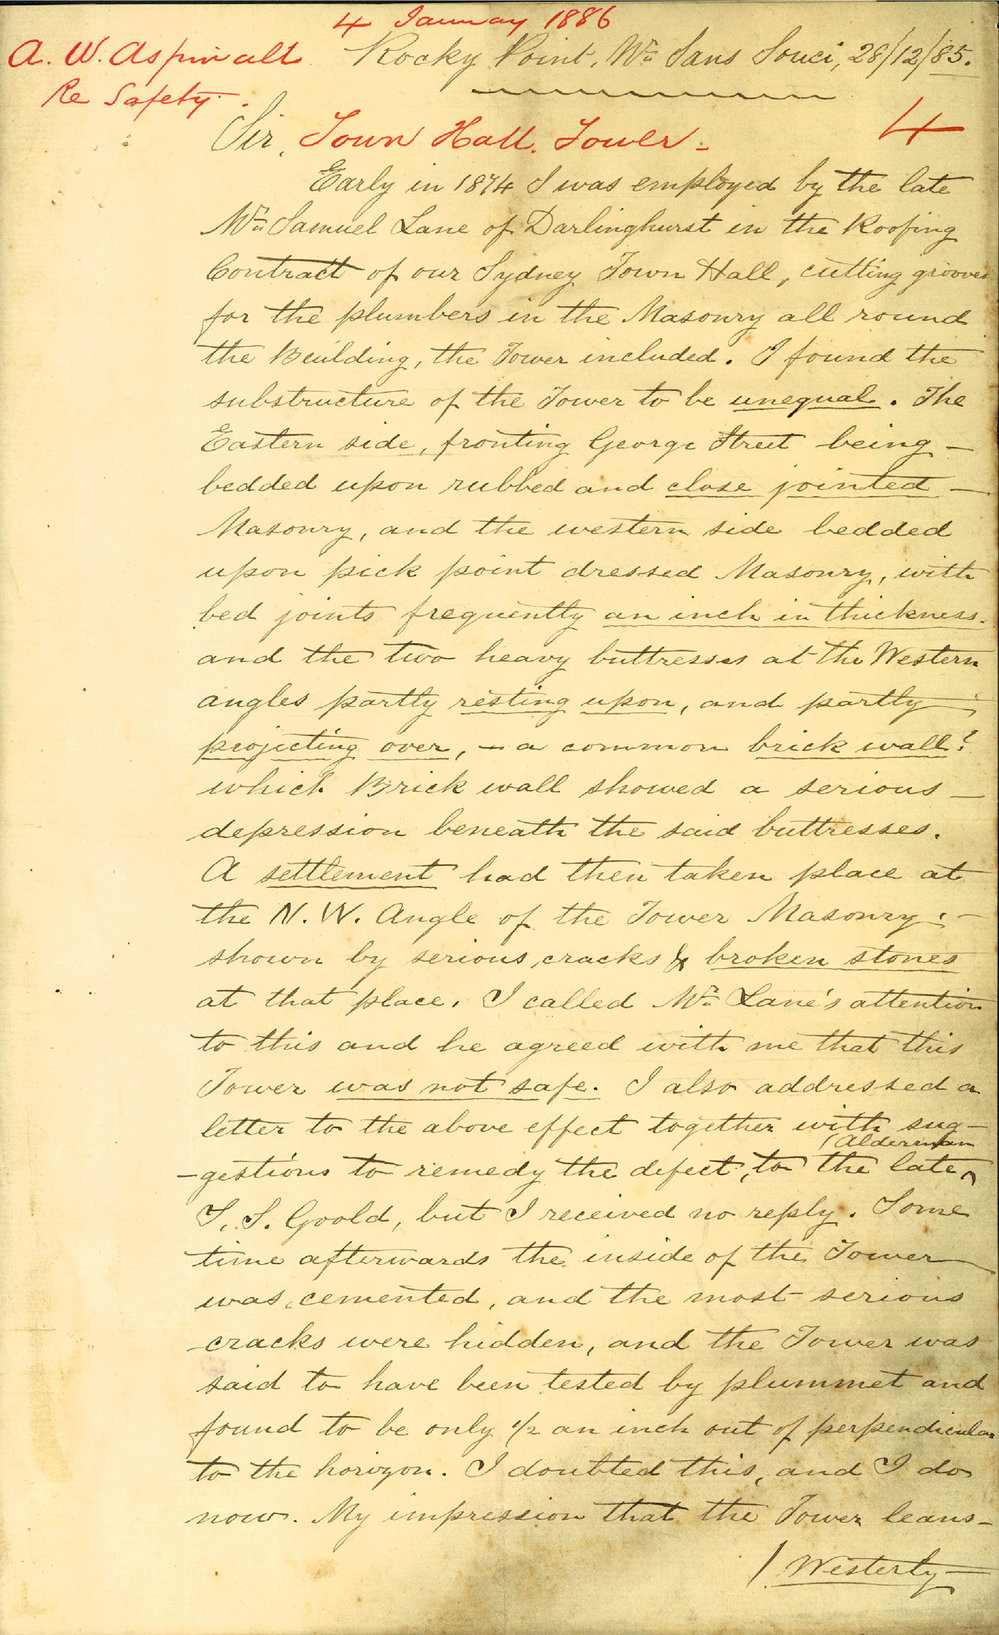 4 January 1886
A. W. Aspinall Rocky Point, Wr Sans Souci, 28/12/85.
Re Safety.
4
Sir, Town Hall. Tower.
Early in 1874 I was employed by the late
Mr. Samuel Lane of Darlinghurst in the Roofing
Contract of our Sydney Town Hall, cutting grooves
for the plumbers in the Masonry all round
the Building, the Tower included. I found the
substructure of the Tower to be unequal. The
Eastern side, fronting George Street being -
bedded upon rubbed and close jointed -
Masonry, and the western side bedded
upon pick point dressed Masonry, with
bed joints frequently an inch in thickness.
and the two heavy buttresses at the Western
angles partly resting upon, and partly -
projecting over, - a common brick wall?
which Brick wall showed a serious -
depression beneath the said buttresses.
A settlement had then taken place at
the N. W. Angle of the Tower Masonry: -
shown by serious cracks & broken stones
at that place. I called Mr. Lane's attention
to this and he agreed with me that this
Tower was not safe. I also addressed a
letter to the above effect together with sug-
(Alderman
-gestions to remedy the defect, to the late ^
T. S. Goold, but I received no reply. Some
time afterwards the inside of the Tower
was cemented, and the most serious
cracks were hidden, and the Tower was
said to have been tested by plummet and
found to be only 1/2 an inch out of perpendicular
to the horizon. I doubted this, and I do
now. My impression that the Tower leans -
/ Westerly -